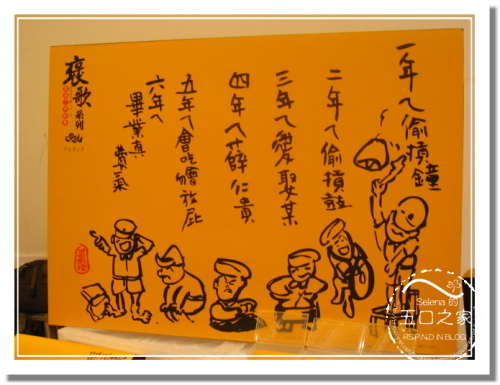 一年ㄟ偷摃鐘
二年ㄟ偷摃鼓
三年ㄟ愛娶某
四年ㄟ薛仁貴
五年ㄟ會吃膾放屁
六年ㄟ
畢業真
費氣
褒歌
系列
Selena 的
五口之家
RS.P.N.D IN BLOG